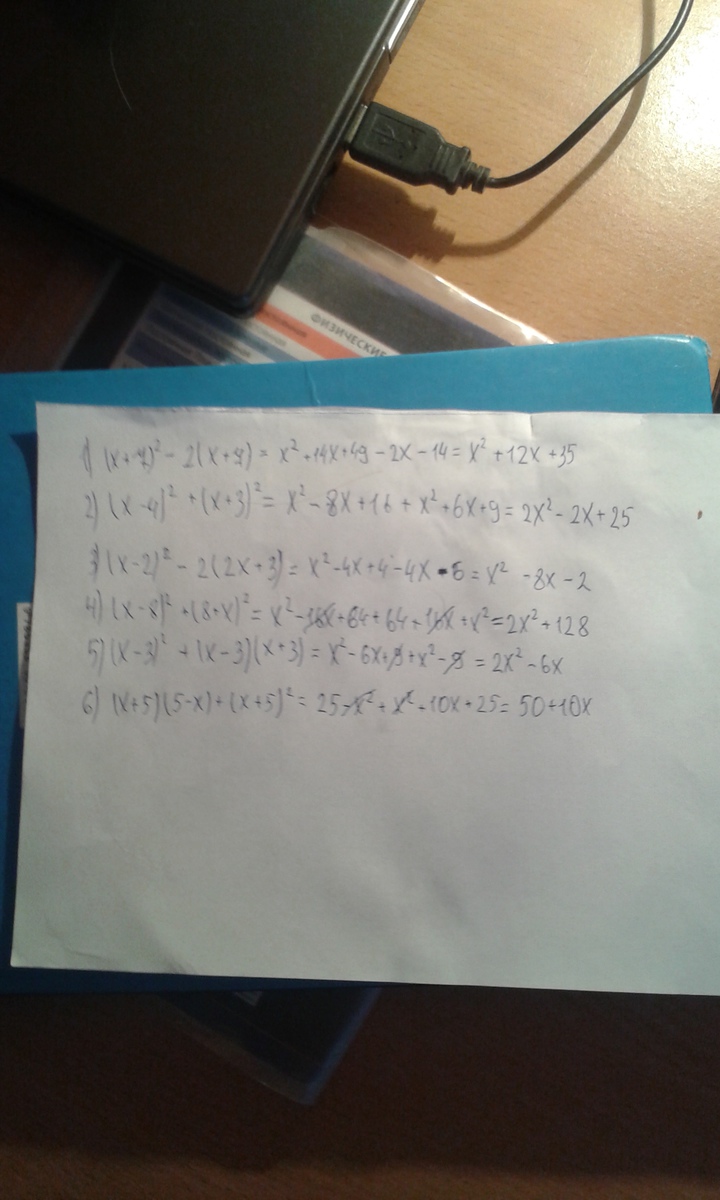 ФИЗИЧЕСКИЕ
1) (x+7)² - 2(x+7) = x² +14x+49 - 2x - 14 = x² + 12x + 35
2) (x-4)² + (x+3)² = x² - 8x + 16 + x² + 6x + 9 = 2x² - 2x + 25
3) (x-2)² - 2(2x+3) = x² - 4x + 4 - 4x - 6 = x² - 8x - 2
4) (x-8)² + (8+x)² = x² - 16x + 64 + 64 + 16x + x² = 2x² + 128
5) (x-3)² + (x-3)(x+3) = x² - 6x + 9 + x² - 9 = 2x² - 6x
6) (x+5)(5-x) + (x+5)² = 25 - x² + x² + 10x + 25 = 50 + 10x